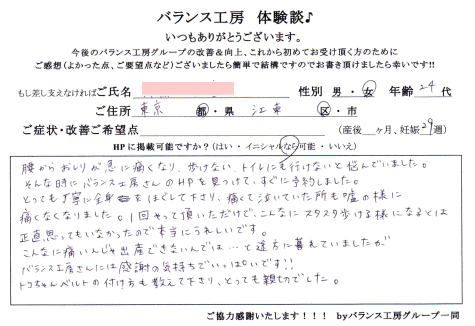 バランス工房 体験談♪
いつもありがとうございます。
今後のバランス工房グループの改善&向上、これから初めてお受け頂く方のために
ご感想(よかった点、ご要望点など)ございましたら簡単で結構ですのでお書き頂けましたら幸いです!!
もし差し支えなければご氏名 性別 男・女 年齢 24 代
ご住所 東京 都・県 江東 区・市
ご症状・改善ご希望点 (産後 ヶ月、妊娠29週)
HPに掲載可能ですか?(はい・イニシャルなら可能・いいえ)
腰からおしりが急に痛くなり、歩けない、トイレにも行けないと悩んでいました。
そんな時にバランス工房さんのHPを見つけて、すぐに予約しました。
とっても丁寧に全身をほぐして下さり、痛くて泣いていた所も嘘の様に
痛くなくなりました。1回やって頂いただけで、こんなにスタスタ歩ける様になるとは
正直思ってもいなかったので本当にうれしいです。
こんなに痛いんじゃ出産できないんでは…と途方に暮れていましたが
バランス工房さんには感謝の気持ちでいっぱいです!!
トコちゃんベルトの付け方も教えて下さり、とっても親切でした。
ご協力感謝いたします!!! byバランス工房グループ一同